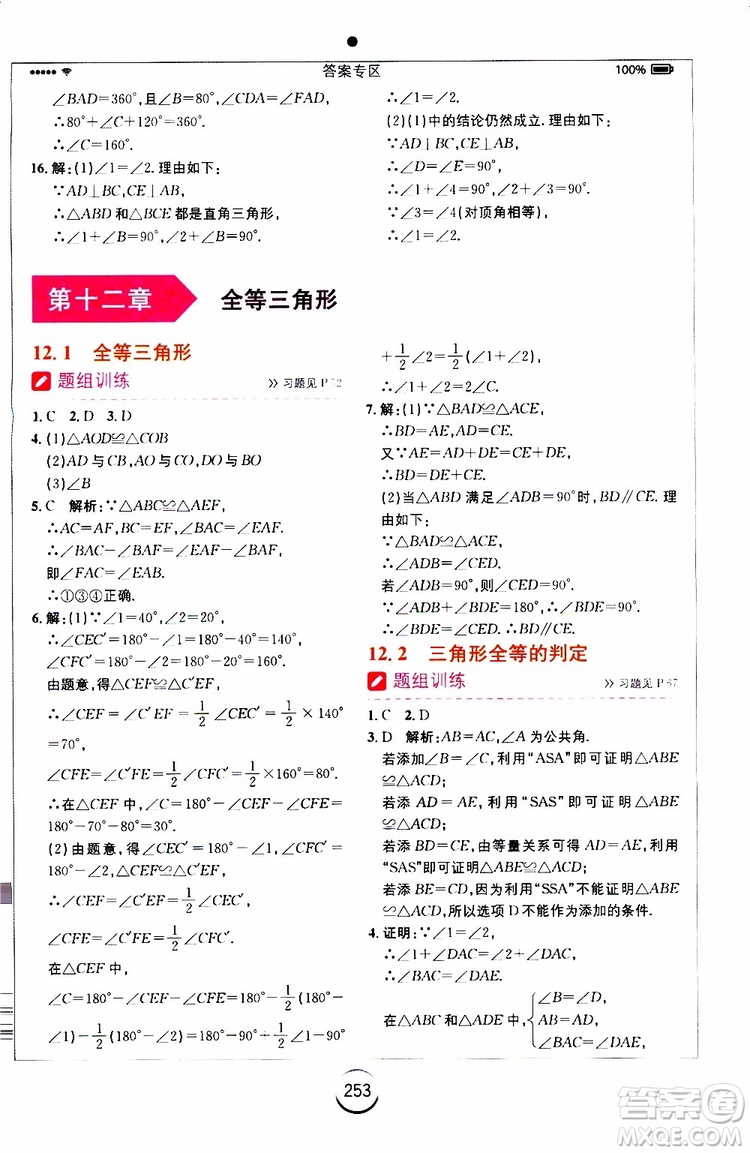 答案专区
100%
∠BAD=360°,且∠B=80°,∠CDA=∠FAD,
∴80°+∠C+120°=360°.
∴∠C=160°.
16. 解:(1)∠1=∠2. 理由如下:
∵AD⊥BC,CE⊥AB,
∴△ABD和△BCE都是直角三角形,
∴∠1+∠B=90°,∠2+∠B=90°,
∴∠1=∠2.
(2)(1)中的结论仍然成立. 理由如下:
∵AD⊥BC,CE⊥AB,
∴∠D=∠E=90°,
∴∠1+∠4=90°,∠2+∠3=90°,
∵∠3=∠4(对顶角相等),
∴∠1=∠2.
第十二章 全等三角形
12.1 全等三角形
题组训练
》习题见P
1. C 2. D 3. D
4. (1)△AOD≌△COB
(2)AD与CB,AO与CO,OD与BO
(3)∠B
5. C 解析:∵△ABC≌△AEF,
∴AC=AF,BC=EF,∠BAC=∠EAF.
∴∠BAC-∠BAF=∠EAF-∠BAF,
即∠FAC=∠EAB.
∴①③④正确.
6. 解:(1)∵∠1=40°,∠2=20°,
∴∠CEC′=180°-∠1=180°-40°=140°,
∠CFC′=180°-∠2=180°-20°=160°.
由题意,得△CEF≌△C′EF,
∴∠CEF=∠C′EF=1/2∠CEC′=1/2×140°
=70°,
∠CFE=∠C′FE=1/2∠CFC′=1/2×160°=80°.
∴在△CEF中,∠C=180°-∠CEF-∠CFE=
180°-70°-80°=30°.
(2)由题意,得∠CEC′=180°-∠1,∠CFC′=
180°-∠2,△CEF≌△C′EF,
∴∠CEF=∠C′EF=1/2∠CEC′,
∠CFE=∠C′FE=1/2∠CFC′.
在△CEF中,
∠C=180°-∠CEF-∠CFE=180°-1/2(180°
-∠1)-1/2(180°-∠2)=180°-90°+1/2∠1-90°
+1/2∠2=1/2(∠1+∠2),
∴∠1+∠2=2∠C.
7. 解:(1)∵△BAD≌△ACE,
∴BD=AE,AD=CE.
又∵AE=AD+DE=CE+DE,
∴BD=DE+CE.
(2)当△ABD满足∠ADB=90°时,BD∥CE. 理
由如下:
∵△BAD≌△ACE,
∴∠ADB=∠CEA.
若∠ADB=90°,则∠CED=90°,
∵∠ADB+∠BDE=180°,∴∠BDE=90°,
∴∠BDE=∠CED. ∴BD∥CE.
12.2 三角形全等的判定
题组训练
》习题见P
1. C 2. D
3. D 解析:AB=AC,∠A为公共角.
若添加∠B=∠C,利用“ASA”即可证明△ABE
≌△ACD;
若添AD=AE,利用“SAS”即可证明△ABE
≌△ACD;
若添BD=CE,由等量关系可得AD=AE,利用
“SAS”即可证明△ABE≌△ACD;
若添BE=CD,因为利用“SSA”不能证明△ABE
≌△ACD,所以选项D不能作为添加的条件.
4. 证明:∵∠1=∠2,
∴∠1+∠DAC=∠2+∠DAC,
∴∠BAC=∠DAE.
在△ABC和△ADE中,
∠B=∠D,
AB=AD,
∠BAC=∠DAE,
253
答案圈
MXQE.COM